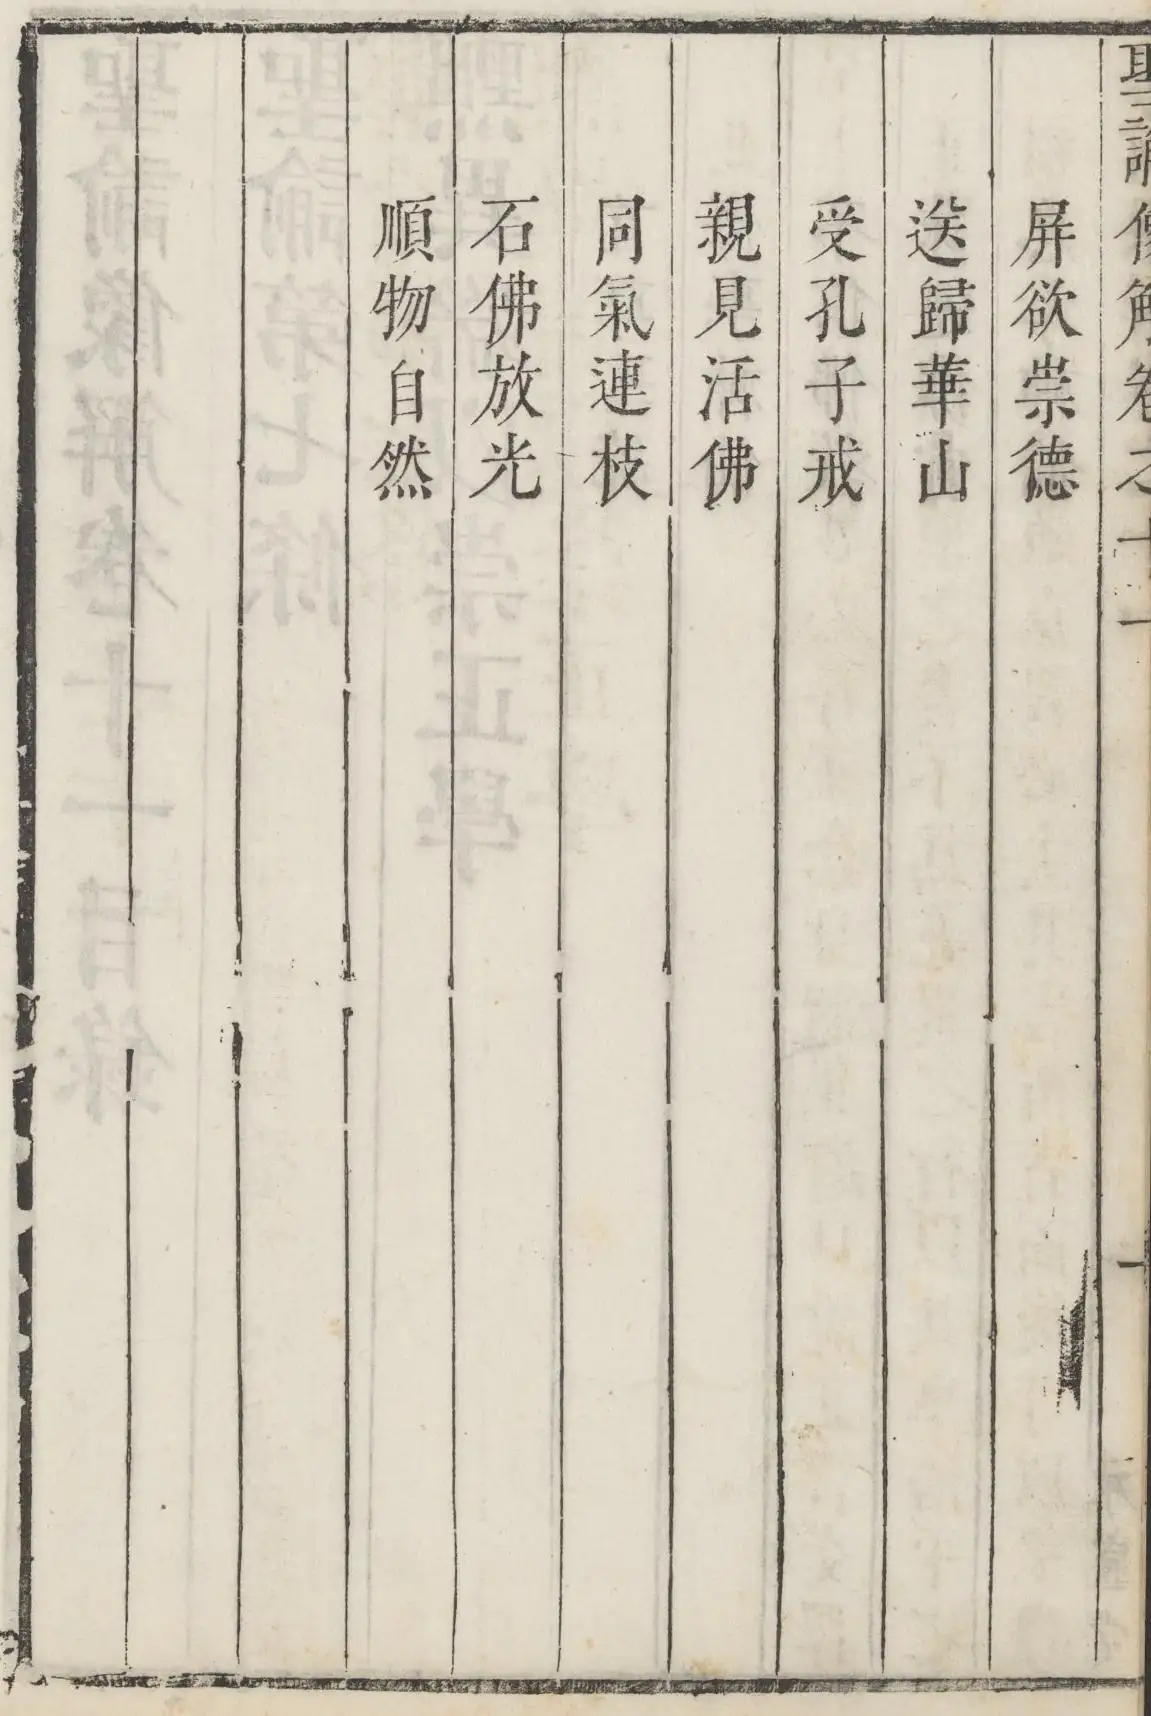 聖諭像解卷之十一
一
屏欲崇德
送歸華山
受孔子戒
親見活佛
同氣連枝
石佛放光
順物自然